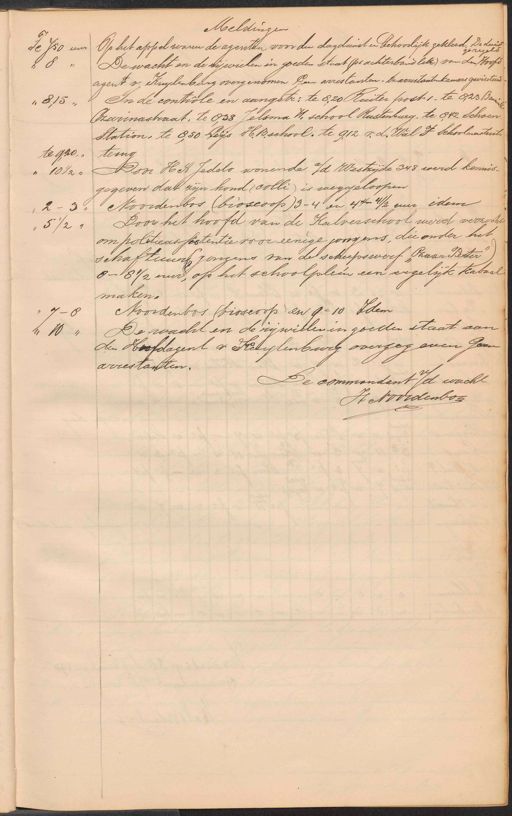 Meldingen
Te 7/50 uur Op het appel waren de agenten voor den dagdienst in behoorlijk gekleed. De dienst geregeld
" 8 " De wacht en de rijwielen in goeden staat van den Hoofd
agent v. Kuylenburg overgenomen Geen arrestanten
" 8/15 " In de contrôle en aangetr: te 8,20 Ruiter post 1. te 8,23
Czarinastraat. te 8,38 Jelsma H. school Rustenburg. te 8,42
Station. te 8,50 Geijs H.B. school. te 9,12 v.d. Wal
te 9,20.
" 10 1/2 " Door H.K. wonende a/d Westzijde 348 werd kennis
gegeven dat zijn hond (colli) is weggeloopen
" 2 - 3 " Noordenbos (bioscoop) 3-4 en 4 - uur idem
" 5 1/2 " Door het hoofd van de Kalverschool werd verzocht
om politiesurpotentie voor eenige jongens, die onder het
schaftuur (jongens van de scheepswerf Czaar Peter)
8 - 8 1/2 uur, op het schoolplein een ergelijk kabaal
maken.
" 7 - 8 Noordenbos (bioscoop) en 9 - 10 Idem
" 10 " De wacht en de rijwielen in goeden staat aan
den Hoofdagent v Kuylenburg overgegeven Geen
arrestanten.
De commandant v/d wacht
H. Noordenbos